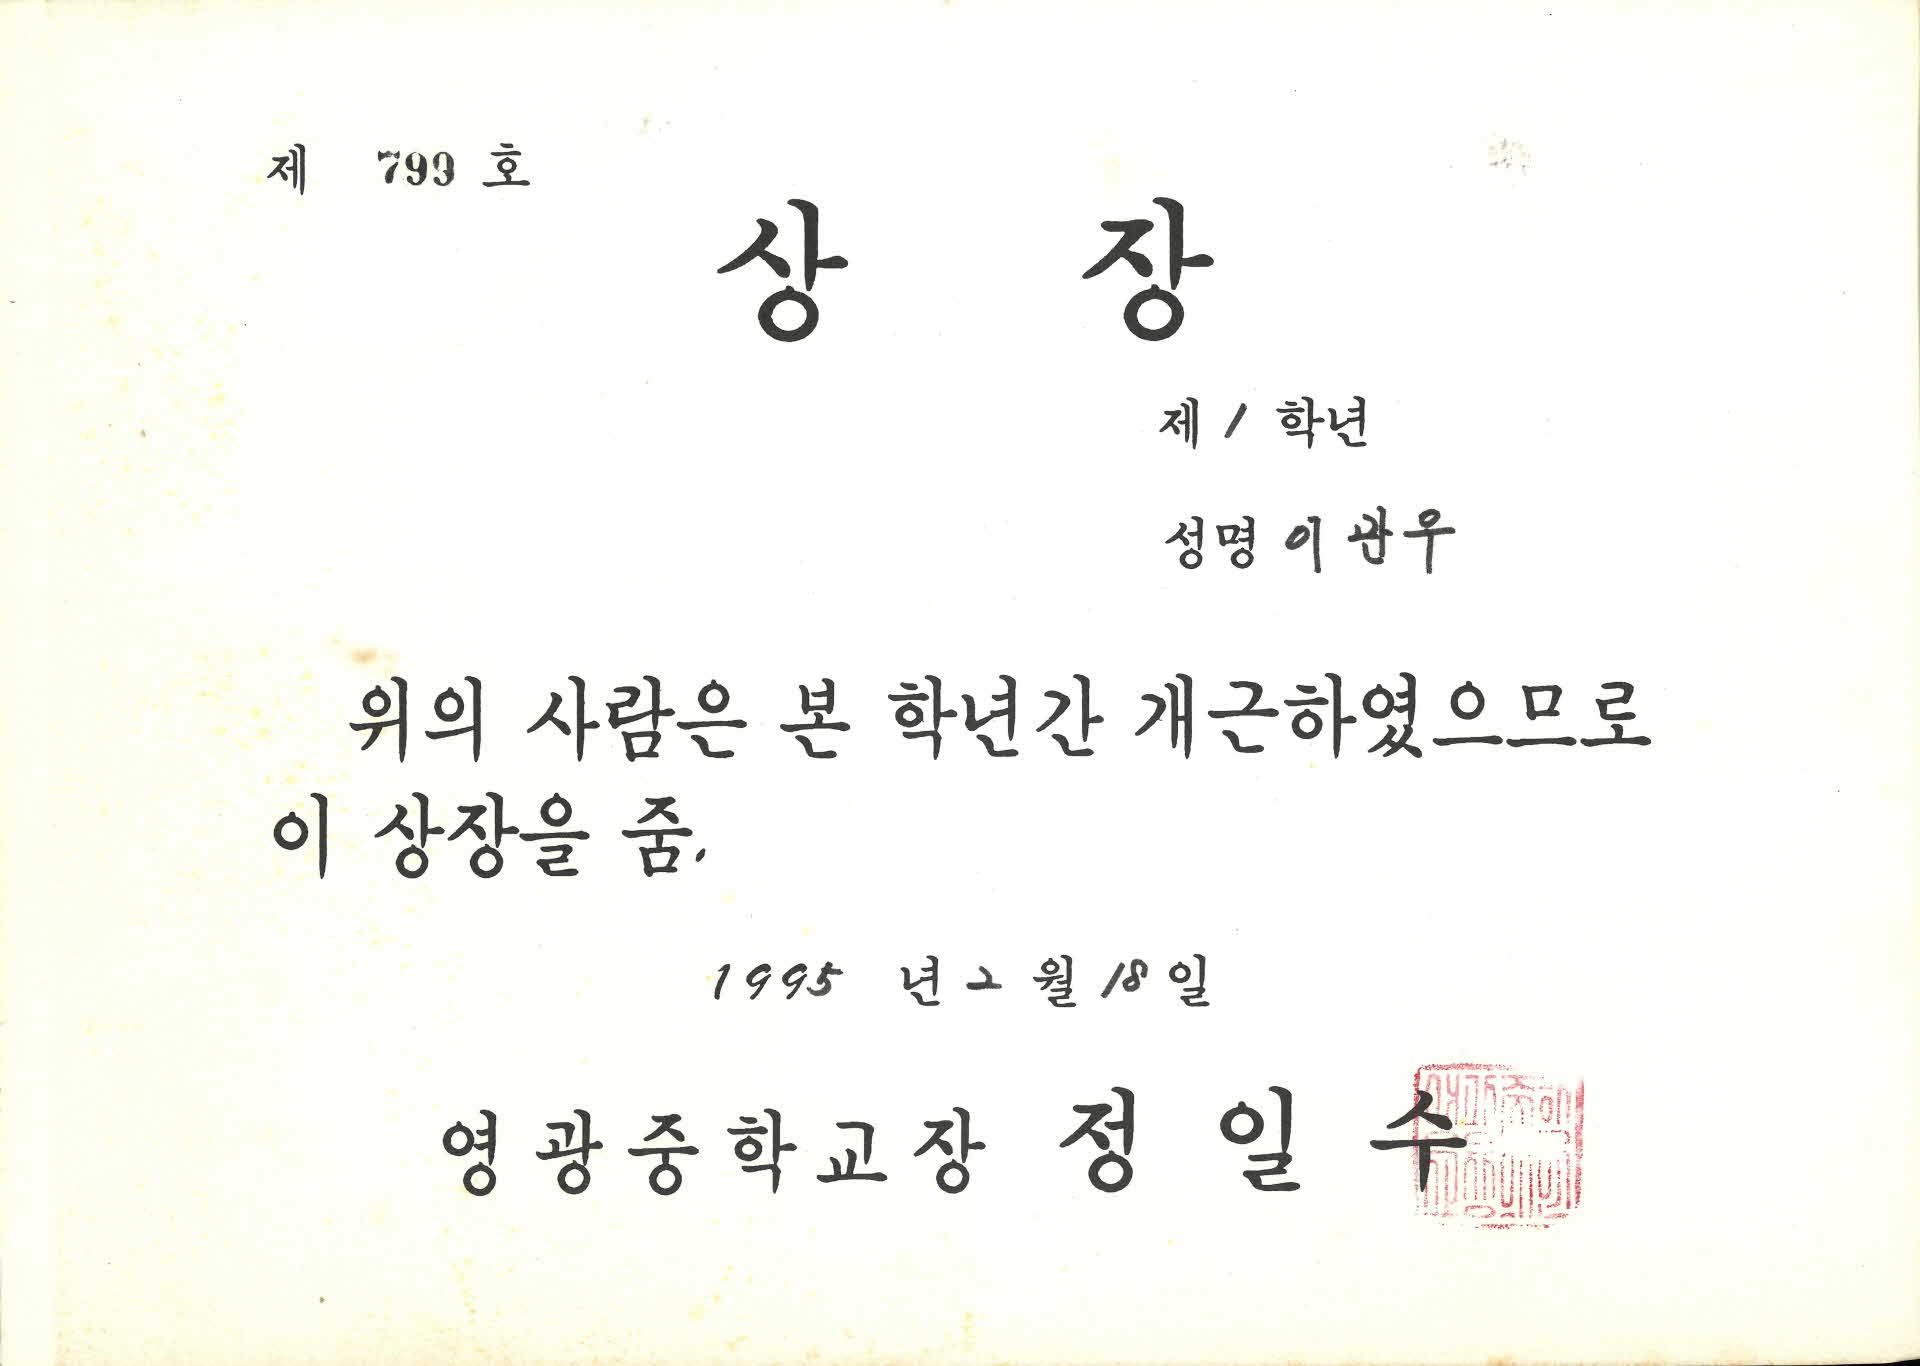 제 799 호
상 장
제 1 학년
성명 이관우
위의 사람은 본 학년간 개근하였으므로
이 상장을 줌.
1995 년 2 월 18 일
영광중학교장 정 일 수